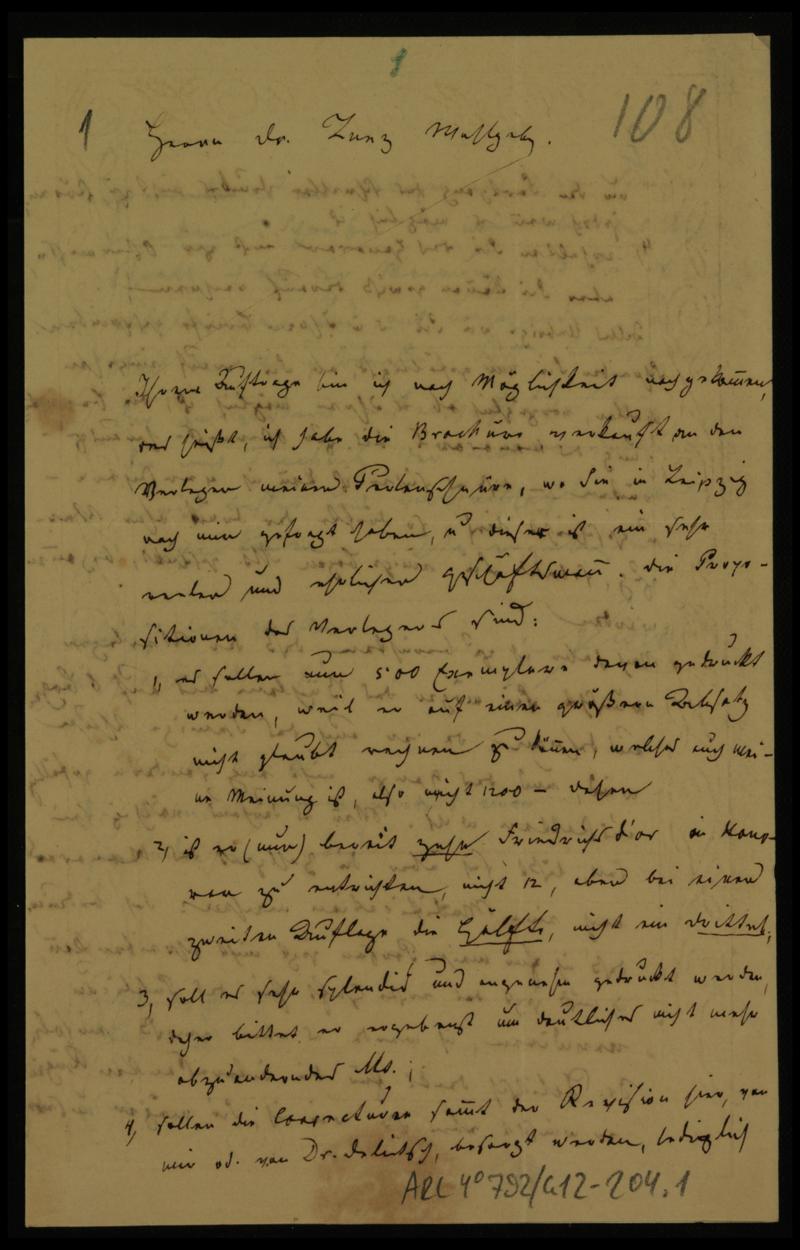 1
108
1 Herrn Dr. Zunz Wohlgeb.
Ihrem Auftrage bin ich nach Möglichkeit nachgekom̄en,
das heißt, ich habe die Brochure verkauft an den
Verleger meiner Perlenschnüre, wo Sie in Leipzig
nach mir gefragt haben, u dieser ist ein sehr
reeler und ehrlicher Geschäftsman̄. Die Propo-
sitionen des Verlegers sind:
1, es sollen nur 500 Exemplare davon gedruckt
werden, weil er auf einen größern Absatz
nicht glaubt rechnen zu kön̄en, welches auch mei-
ne Meinung ist, also nicht 1200 –
2, ist er (nur) bereit zehn Friedrichsd'or an Hono-
rar zu entrichten, nicht 12, eben bei einer
zweiten Auflage die Hälfte, nicht ein Drittel;
3, soll es sehr splendid und angenehm gedruckt werden,
daher bittet er ergebenst um deutliches nicht mehr
abzuänderndes Ms.;
4, sollen die Correcturen sam̄t der Revision hier, von
mir od. von Dr. Delitsch, besorgt werden, lediglich
ARC 4° 792/G12-204.1